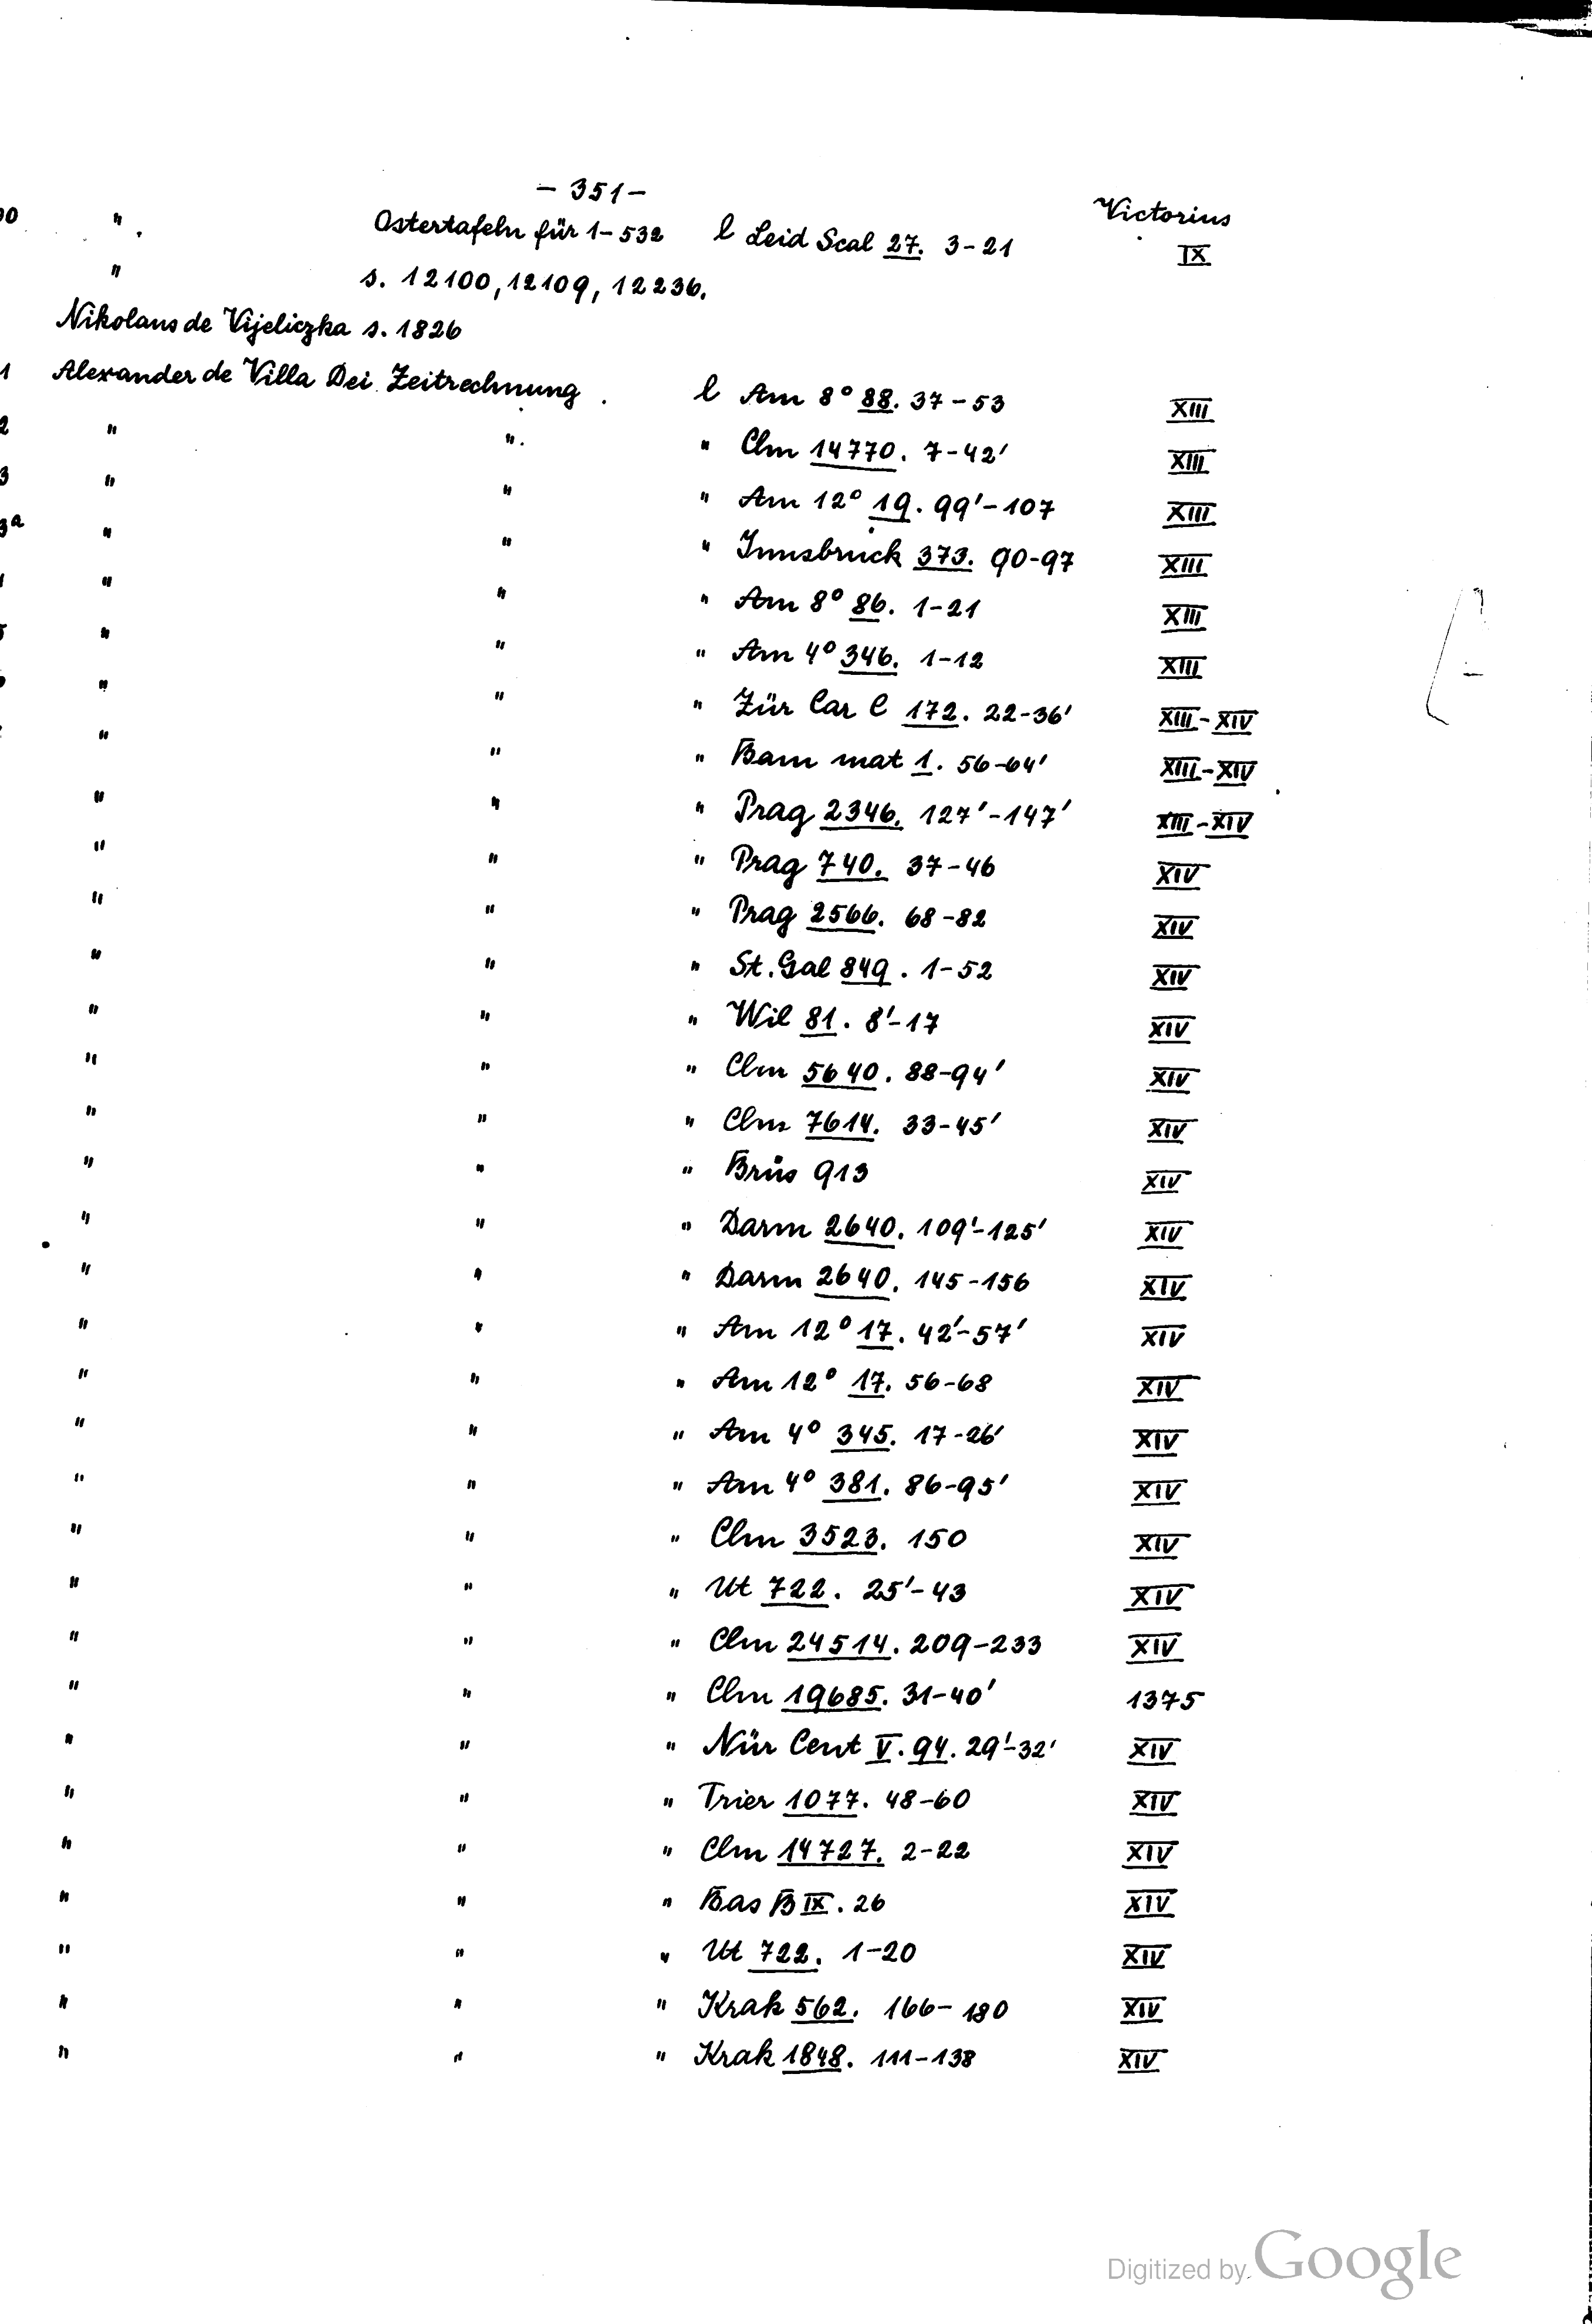 – 351 –
Victorius
00 " Ostertafeln für 1-532 l Leid Scal 27. 3-21 IX
" s. 12100, 12109, 12236.
Nikolaus de Vijeliczka s. 1826
1 Alexander de Villa Dei Zeitrechnung. l Am 8° 88. 37-53 XIII
2 " " " Clm 14770. 7-42' XIII
3 " " " Am 12° 19. 99'-107 XIII
3a " " " Innsbruck 373. 90-97 XIII
" " " Am 8° 86. 1-21 XIII
5 " " " Am 4° 346. 1-12 XIII
" " " Zür Car C 172. 22-36' XIII-XIV
" " " Bam mat 1. 56-64' XIII-XIV
" " " Prag 2346. 127'-147' XIII-XIV
" " " Prag 740. 37-46 XIV
" " " Prag 2566. 68-82 XIV
" " " St. Gal 849. 1-52 XIV
" " " Wil 81. 8'-17 XIV
" " " Clm 5640. 88-94' XIV
" " " Clm 7614. 33-45' XIV
" " " Brüs 913 XIV
" " " Darm 2640. 109'-125' XIV
" " " Darm 2640. 145-156 XIV
" " " Am 12° 17. 42'-57' XIV
" " " Am 12° 17. 56-68 XIV
" " " Am 4° 345. 17-26' XIV
" " " Am 4° 381. 86-95' XIV
" " " Clm 3523. 150 XIV
" " " Ut 722. 25'-43 XIV
" " " Clm 24514. 209-233 XIV
" " " Clm 19685. 31-40' 1375
" " " Nür Cent V. 94. 29'-32' XIV
" " " Trier 1077. 48-60 XIV
" " " Clm 14727. 2-22 XIV
" " " Bas B IX. 26 XIV
" " " Ut 722. 1-20 XIV
" " " Krak 562. 166-180 XIV
" " " Krak 1848. 111-138 XIV
Digitized by Google